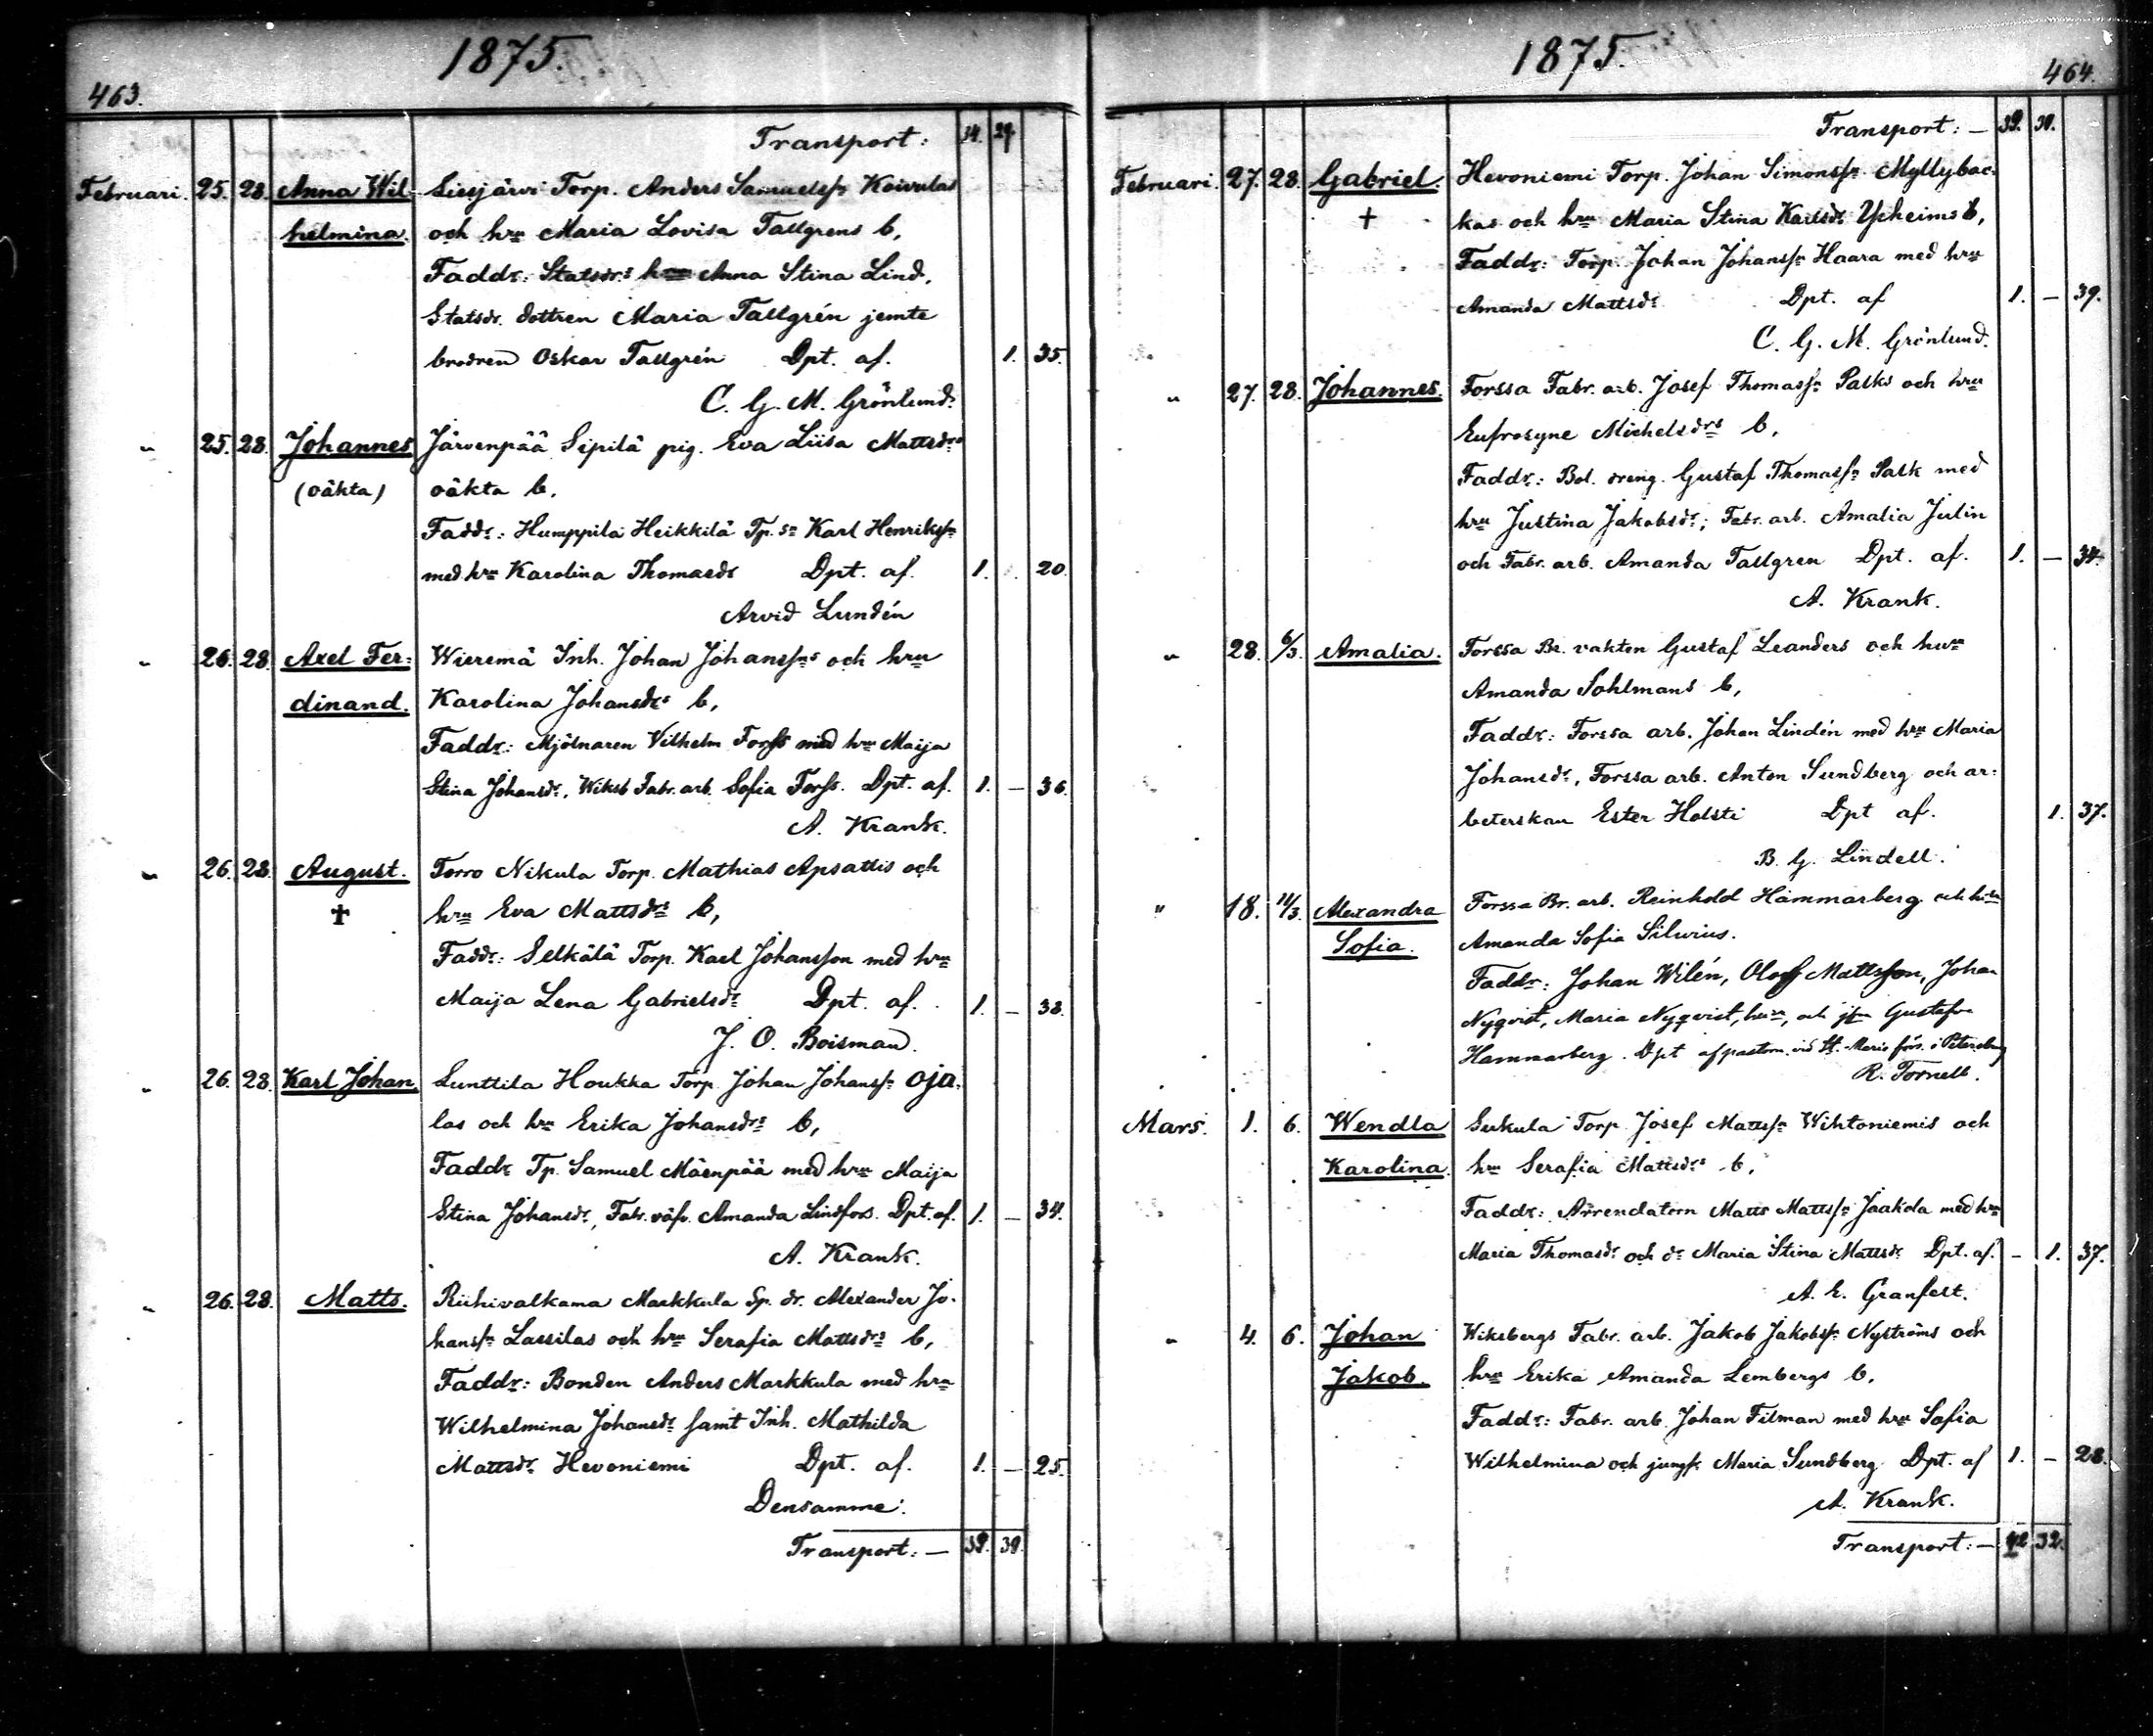 1875.
463.
Transport: 34. 29.
Februari. 25. 28. Anna Wil- Liesjärvi Torp. Anders Samuelsfn Koivulas
helmina. och hru Maria Lovisa Tallgrens b,
Faddr: Statsdr:s hru Anna Stina Lind,
Statsdr. dottren Maria Tallgrén jemte
brodren Oskar Tallgrén Dpt. af. 1. 35.
C. G. M. Grönlund.
" 25. 28. Johannes Järvenpää Sipilä pig. Eva Liisa Mattsdrs
(oäkta) oäkta b.
Faddr: Humppila Heikkilä Tp. sn Karl Henriksfn
med hru Karolina Thomasdr Dpt. af. 1. 20.
Arvid Lundén
" 26. 28. Axel Fer- Wieremä Inh. Johan Johansfns och hru
dinand. Karolina Johansdrs b,
Faddr: Mjölnaren Vilhelm Forss med hru Maija
Stina Johansdr, Wiksb. Fabr. arb. Sofia Forss. Dpt. af. 1. — 36.
A. Krank.
" 26. 28. August. Torro Nikula Torp. Mathias Apsattis och
† hru Eva Mattsdrs b,
Faddr: Selkälä Torp. Karl Johansson med hru
Maija Lena Gabrielsdr Dpt. af. 1. — 38.
J. O. Boisman.
" 26. 28. Karl Johan. Sunttila Houkka Torp. Johan Johansfn Oja-
las och hru Erika Johansdrs b,
Faddr Tp. Samuel Mäenpää med hru Maija
Stina Johansdr, Fabr. väfv. Amanda Lindfors. Dpt. af. 1. — 34.
A. Krank.
" 26. 28. Matts. Riihivalkama Markkula Sp. dr. Alexander Jo-
hansfn Lassilas och hru Serafia Mattsdrs b,
Faddr: Bonden Anders Markkula med hru
Wilhelmina Johansdr samt Inh. Mathilda
Mattsdr Hevoniemi Dpt. af. 1. — 25.
Densamme.
Transport: — 39. 30.
1875.
464.
Transport: — 39. 30.
Februari. 27. 28. Gabriel. Hevoniemi Torp. Johan Simonsfn Myllybac-
† kas och hru Maria Stina Karlsdr Ypheims b,
Faddr: Torp. Johan Johansfn Haara med hru
Amanda Mattsdr Dpt. af 1. — 39.
C. G. M. Grönlund.
" 27. 28. Johannes. Forssa Fabr. arb. Josef Thomasfn Palks och hru
Eufrosyne Michelsdrs b,
Faddr: Bol. dreng. Gustaf Thomasfn Palk med
hru Justina Jakobsdr, Fabr. arb. Amalia Julin
och Fabr. arb. Amanda Tallgren Dpt. af. 1. — 34.
A. Krank.
" 28. 6/3. Amalia. Forssa Br. vakten Gustaf Leanders och hru
Amanda Sohlmans b,
Faddr: Forssa arb. Johan Lindén med hru Maria
Johansdr, Forssa arb. Anton Sundberg och ar-
beterskan Ester Holsti Dpt af. 1. 37.
B. G. Lindell.
" 18. 11/3. Alexandra Forssa Br. arb. Reinhold Hammarberg och hru
Sofia. Amanda Sofia Silwius.
Faddr: Johan Wilén, Olof Mattsson, Johan
Nyqvist, Maria Nyqvist, hru, och jfru Gustafva
Hammarberg. Dpt af pastorn vid St. Marie förs. i Petersburg
R. Tornell.
Mars. 1. 6. Wendla Sukula Torp. Josef Mattsfn Wihtoniemis och
Karolina. hru Serafia Mattsdrs b,
Faddr: Arrendatorn Matts Mattsfn Jaakola med hru
Maria Thomasdr och dr Maria Stina Mattsdr Dpt. af. — 1. 37.
A. E. Granfelt.
" 4. 6. Johan Wiksbergs Fabr. arb. Jakob Jakobsfn Nyströms och
Jakob. hru Erika Amanda Lembergs b,
Faddr: Fabr. arb. Johan Filman med hru Sofia
Wilhelmina och jungf. Maria Sundberg Dpt. af 1. — 28.
A. Krank.
Transport: — 42 32.